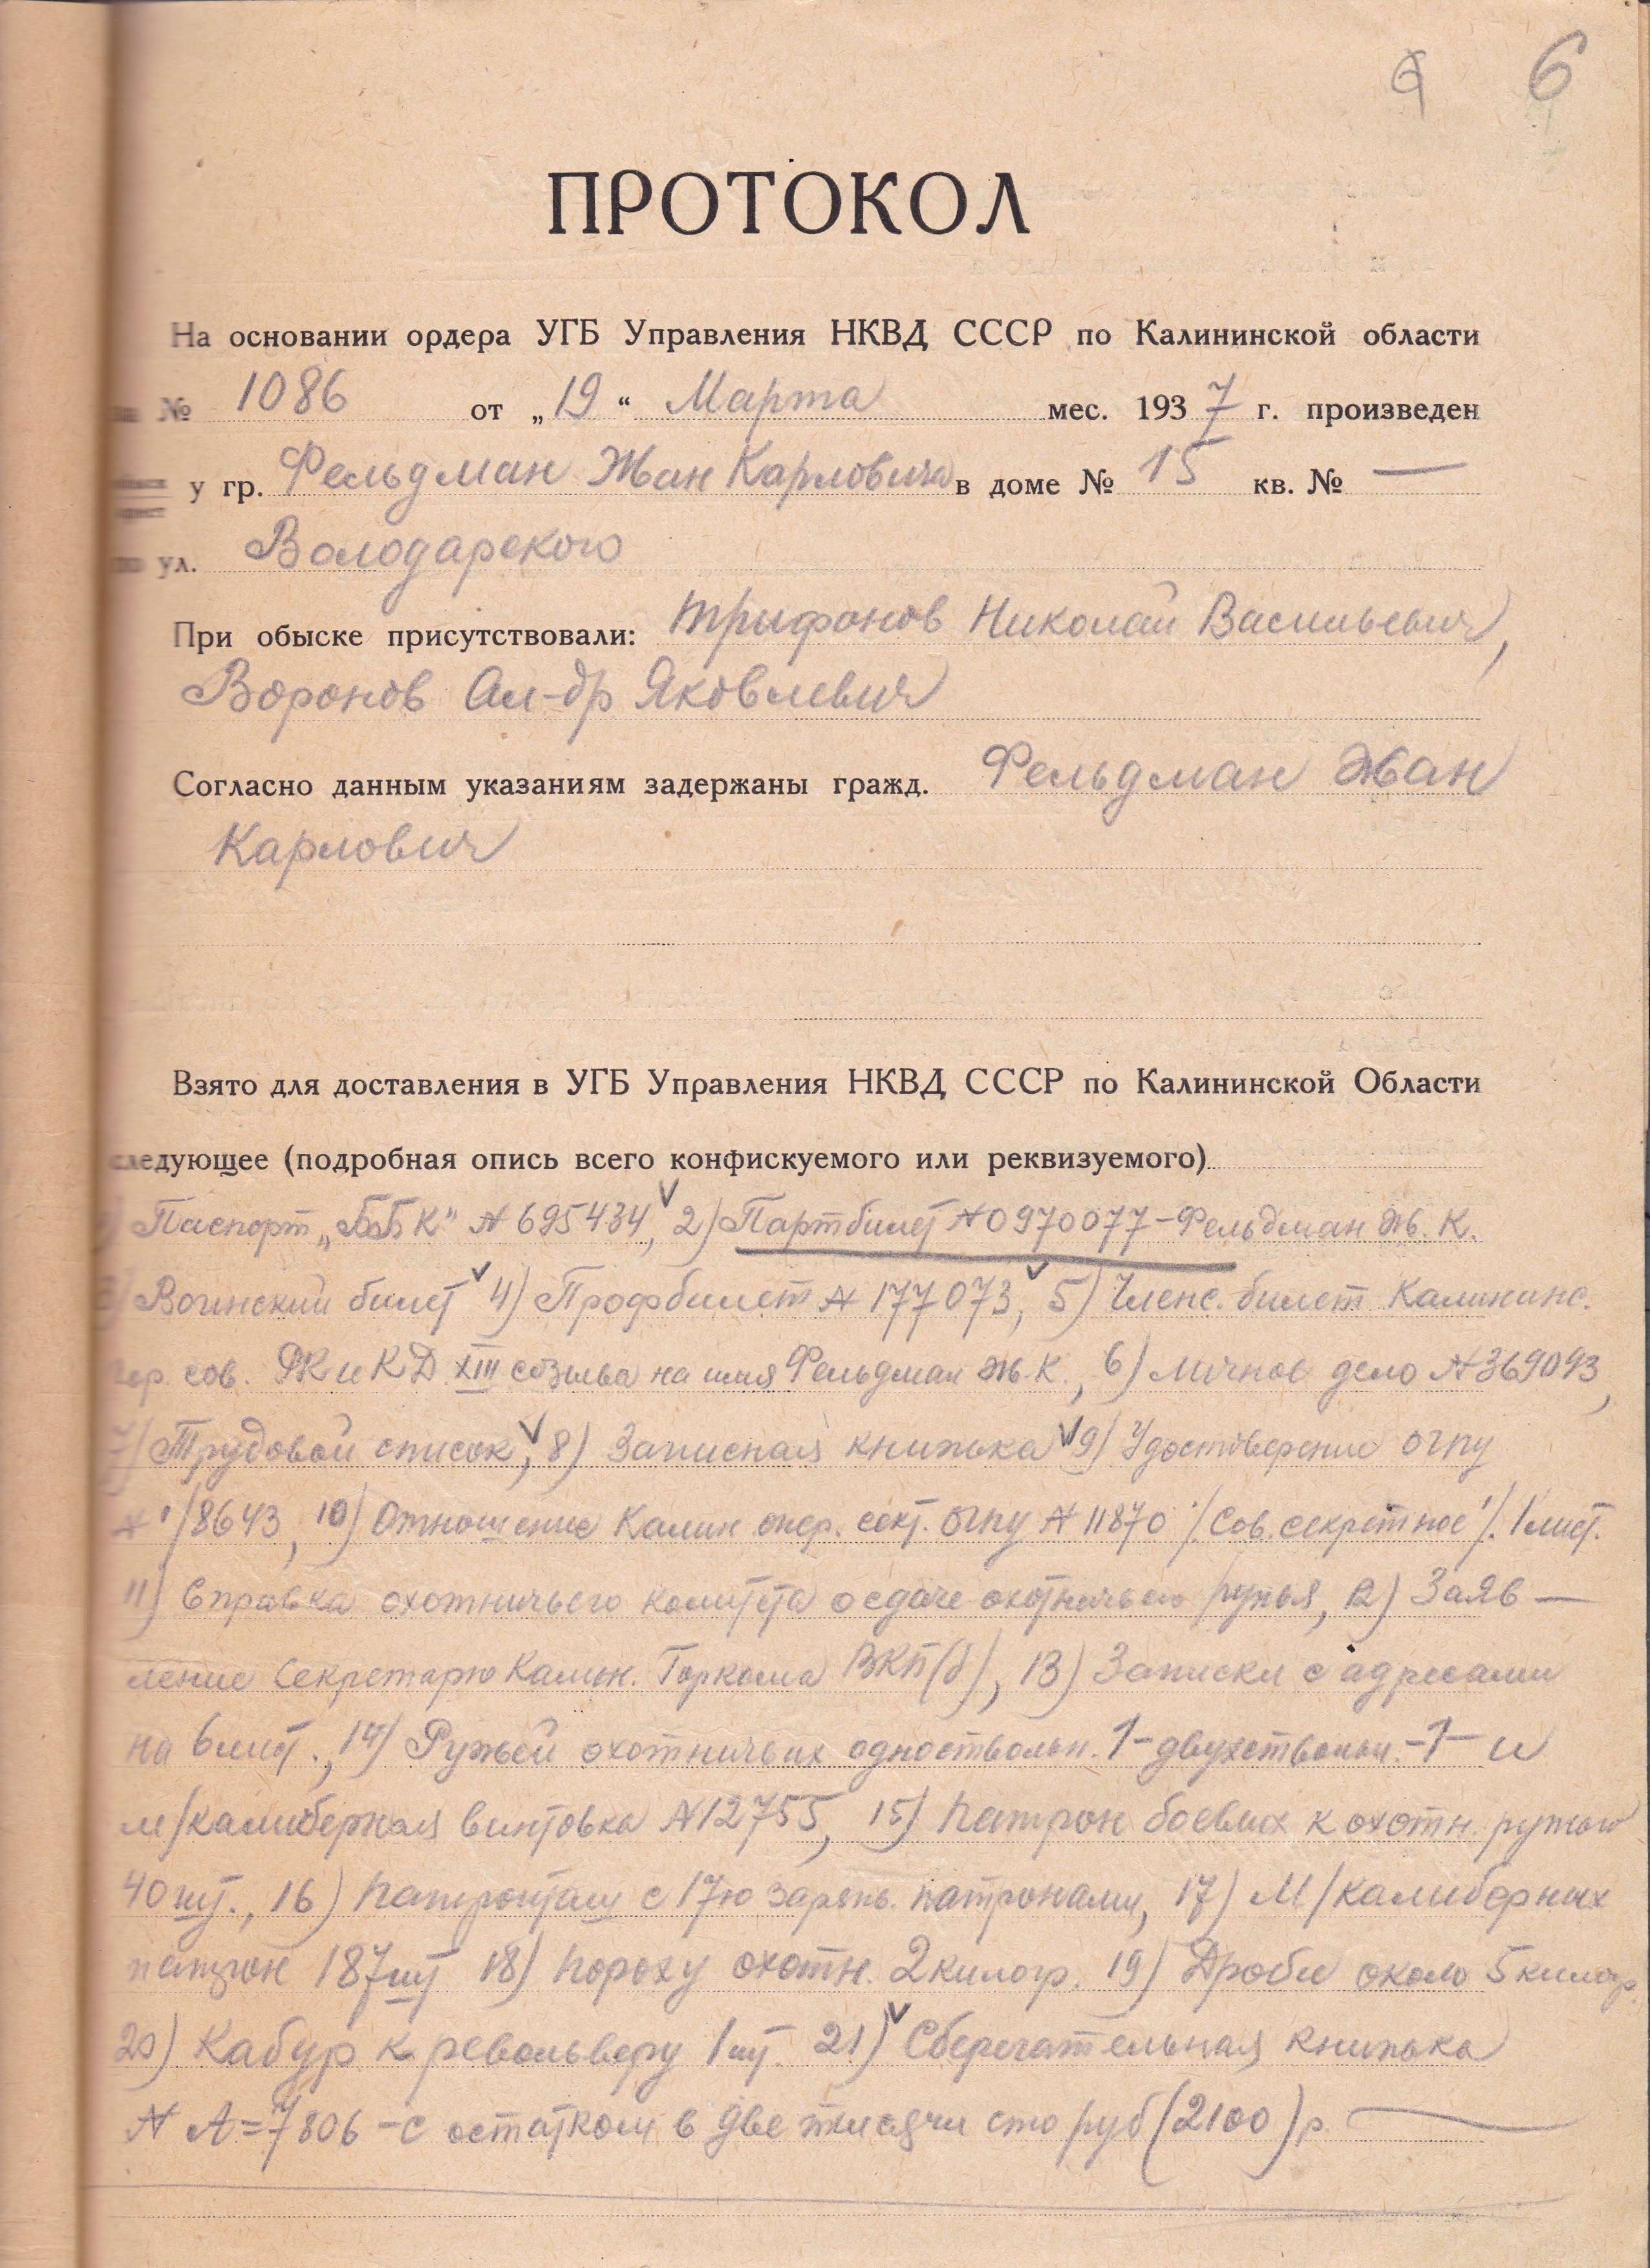 6 6
ПРОТОКОЛ
На основании ордера УГБ Управления НКВД СССР по Калининской области
№ 1086 от „19“ Марта мес. 1937 г. произведен
у гр. Фельдман Жан Карловича в доме № 15 кв. № —
ул. Володарского
При обыске присутствовали: Трифонов Николай Васильевич,
Воронов Ал-др Яковлевич
Согласно данным указаниям задержаны гражд. Фельдман Жан
Карлович
Взято для доставления в УГБ Управления НКВД СССР по Калининской Области
следующее (подробная опись всего конфискуемого или реквизуемого)
Паспорт „ББК“ № 695434, 2) Партбилет № 0970077 – Фельдман Ж. К.
Воинский билет 4) Профбилет № 177073, 5) Членс. билет Калининс.
гор. сов. РК и КД XIII созыва на имя Фельдман Ж. К., 6) Личное дело № 369093,
7) Трудовой список, 8) Записная книжка 9) Удостоверение ОГПУ
№ 1/8643, 10) Отношение Калин. опер. сект. ОГПУ № 11870 /. Сов. секретное /. 1 лист.
11) Справка охотничьего комитета о сдаче охотничьего ружья, 12) Заяв –
ление Секретарю Калин. Горкома ВКП(б), 13) Записки с адресами
на 6 лист., 14) Ружей охотничьих одноствольн. 1 – двухствольн. – 1 – и
м/калиберная винтовка № 12755, 15) Патрон боевых к охотн. ружью
40 шт., 16) Патронташ с 17ю заряж. патронами, 17) М/калиберных
патрон 187 шт 18) Пороху охотн. 2 килогр. 19) Дроби около 5 килогр.
20) Кабур к револьверу 1 шт. 21) Сберегательная книжка
№ А = 7806 – с остатком в две тысячи сто руб (2100) р.